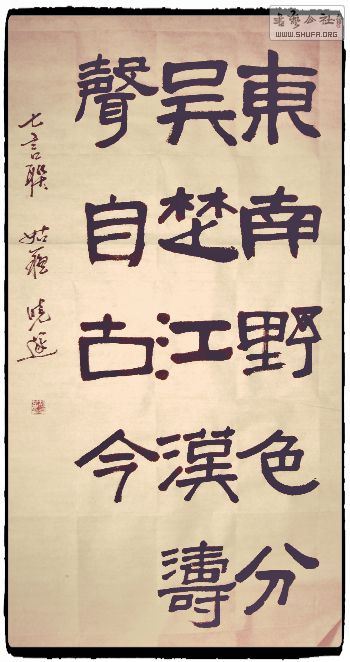 東南野色分
吳楚江漢濤
聲自古今
七言聯 姑蘇 曉遊
书艺公社
WWW.SHUFA.ORG